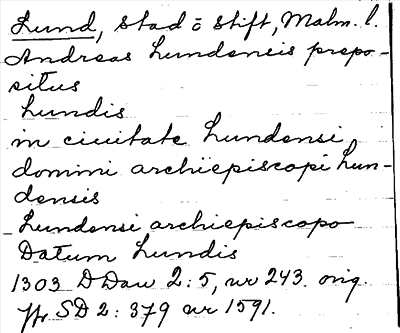 Lund, Stad o Stift, Malm. l.
Andreas Lundensis prepo-
situs
Lundis
in ciuitate Lundensi
domini archiepiscopi Lun-
densis
Lundensi archiepiscopo
Datum Lundis
1303 DDan 2:5, nr 243. orig.
Jfr SD 2: 379 nr 1591.